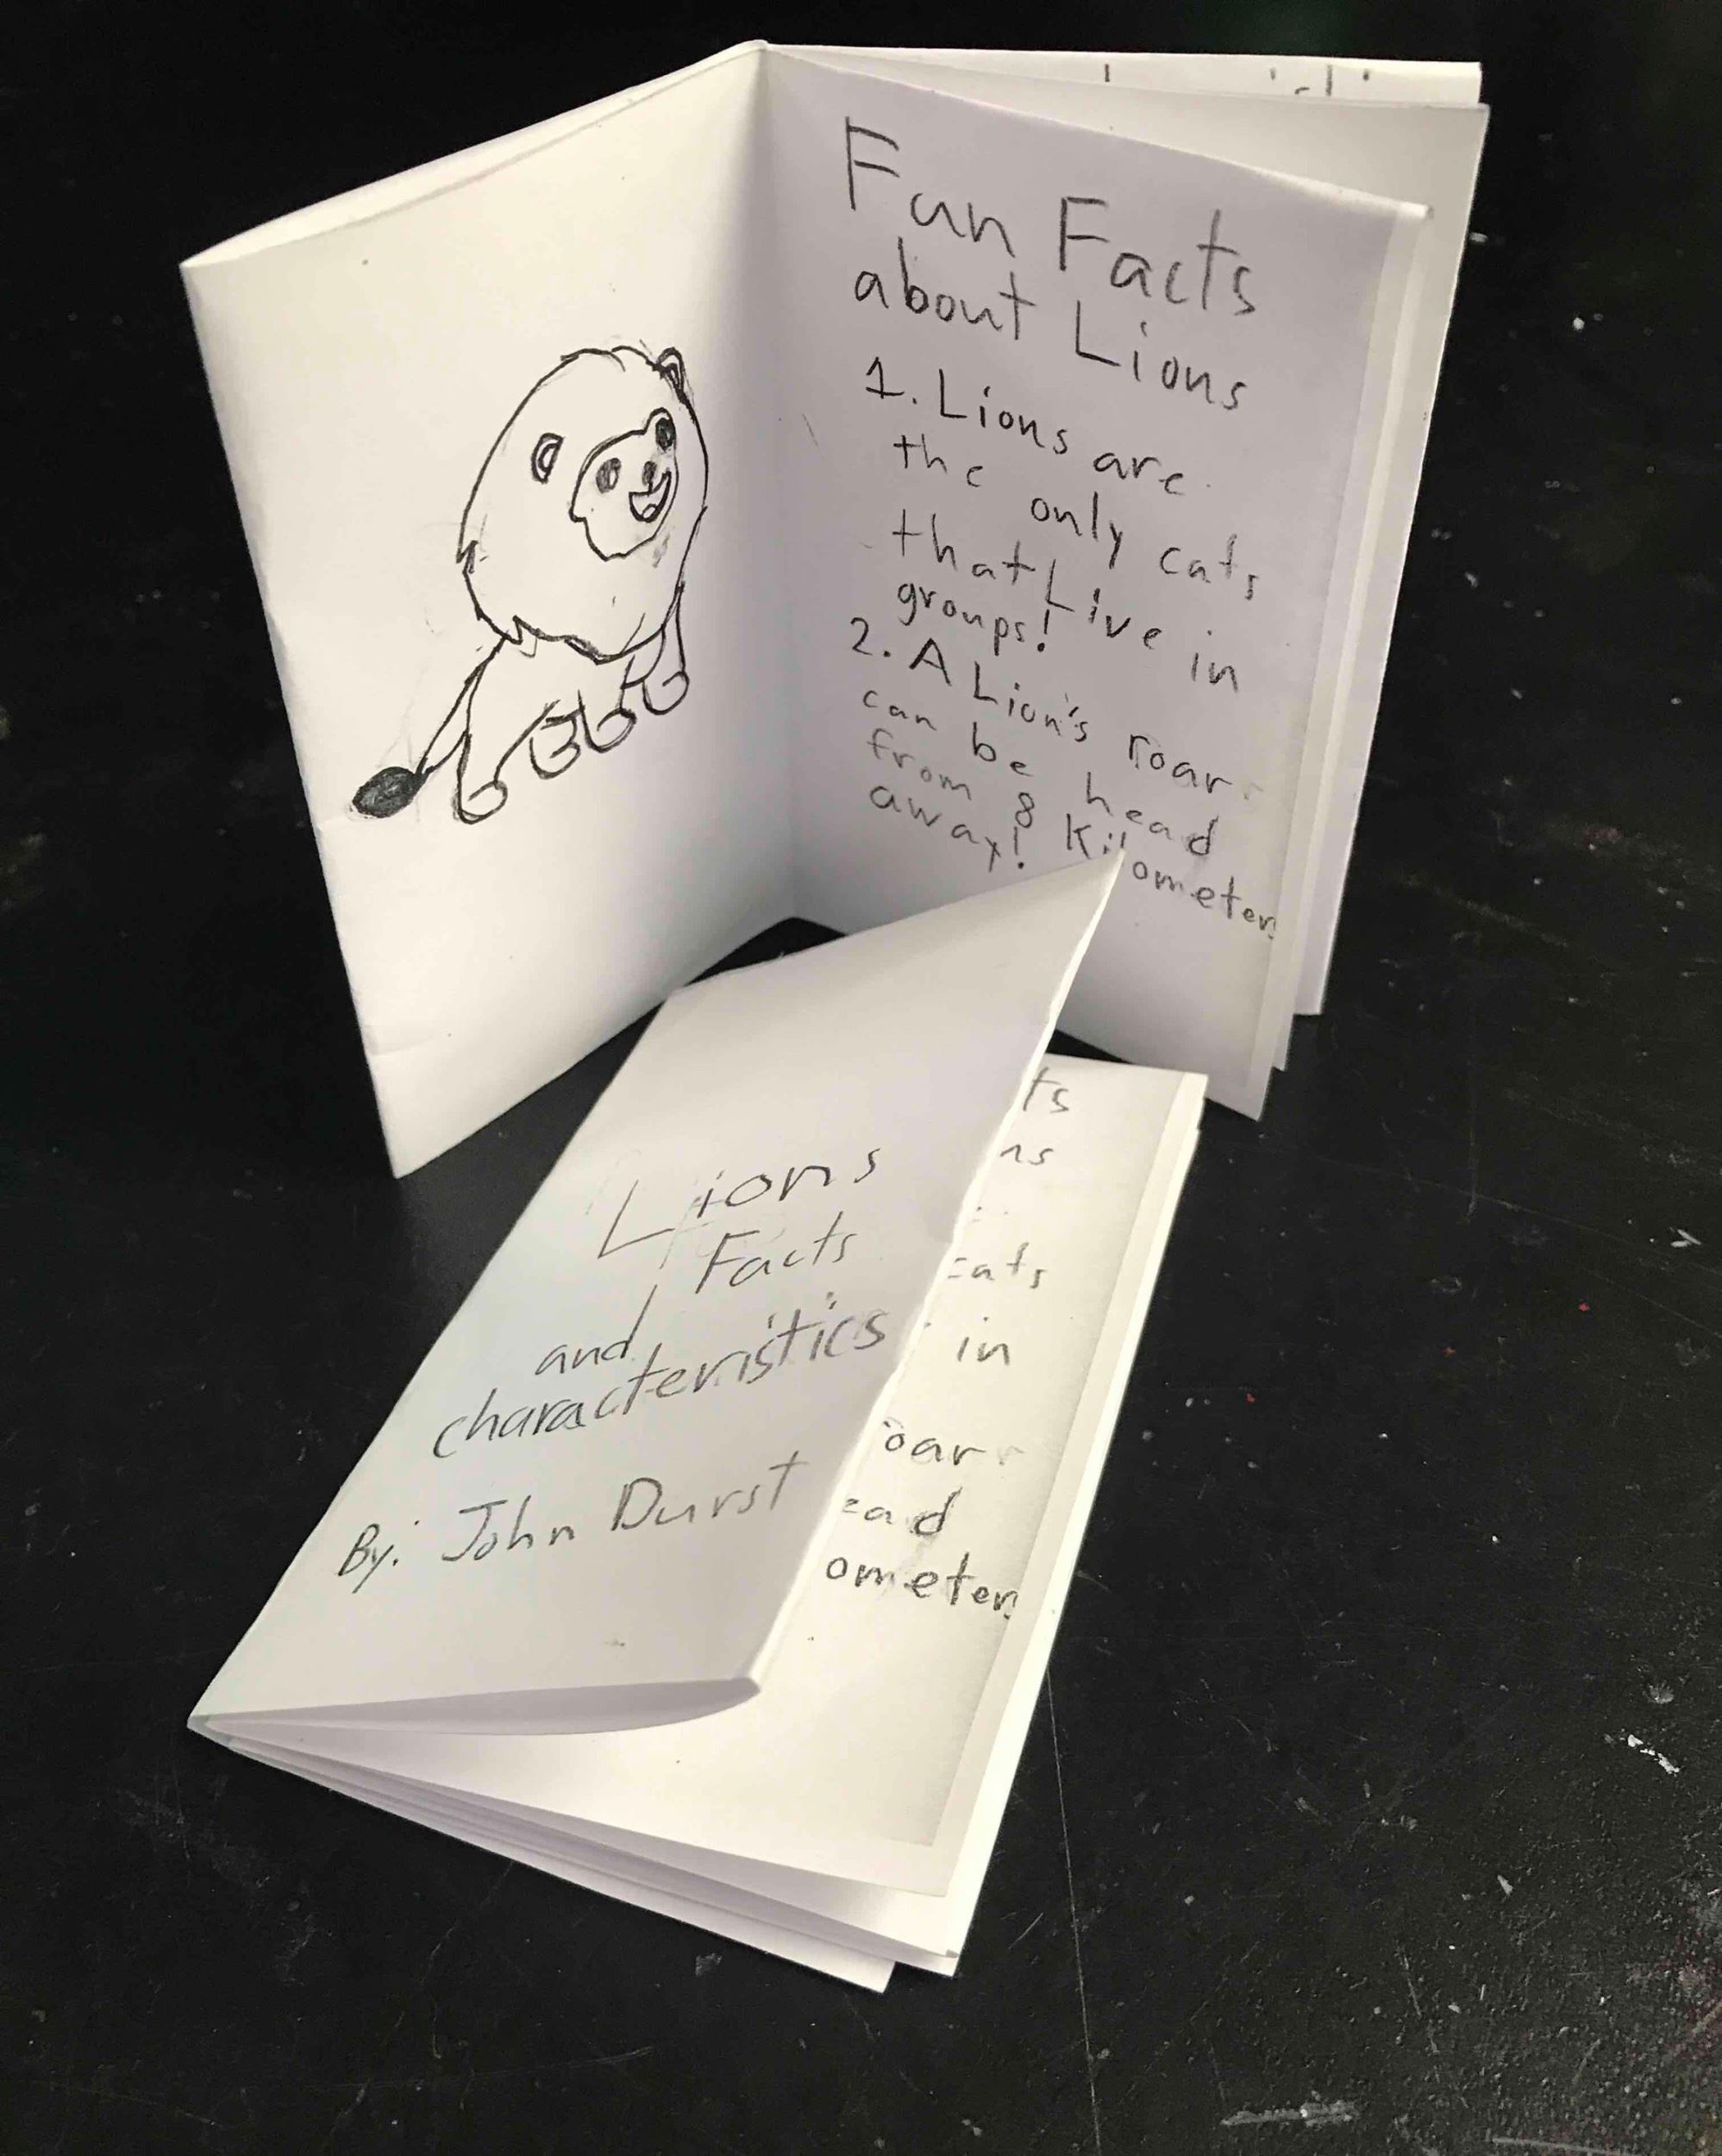 Fun Facts
about Lions
1. Lions are
the only cats
that Live in
groups!
2. A Lion's roar
can be head
from 8 Kilometers
away!
Lions
Facts
and
characteristics
By: John Durst
ts
ns
cats
in
oar
ead
ometers